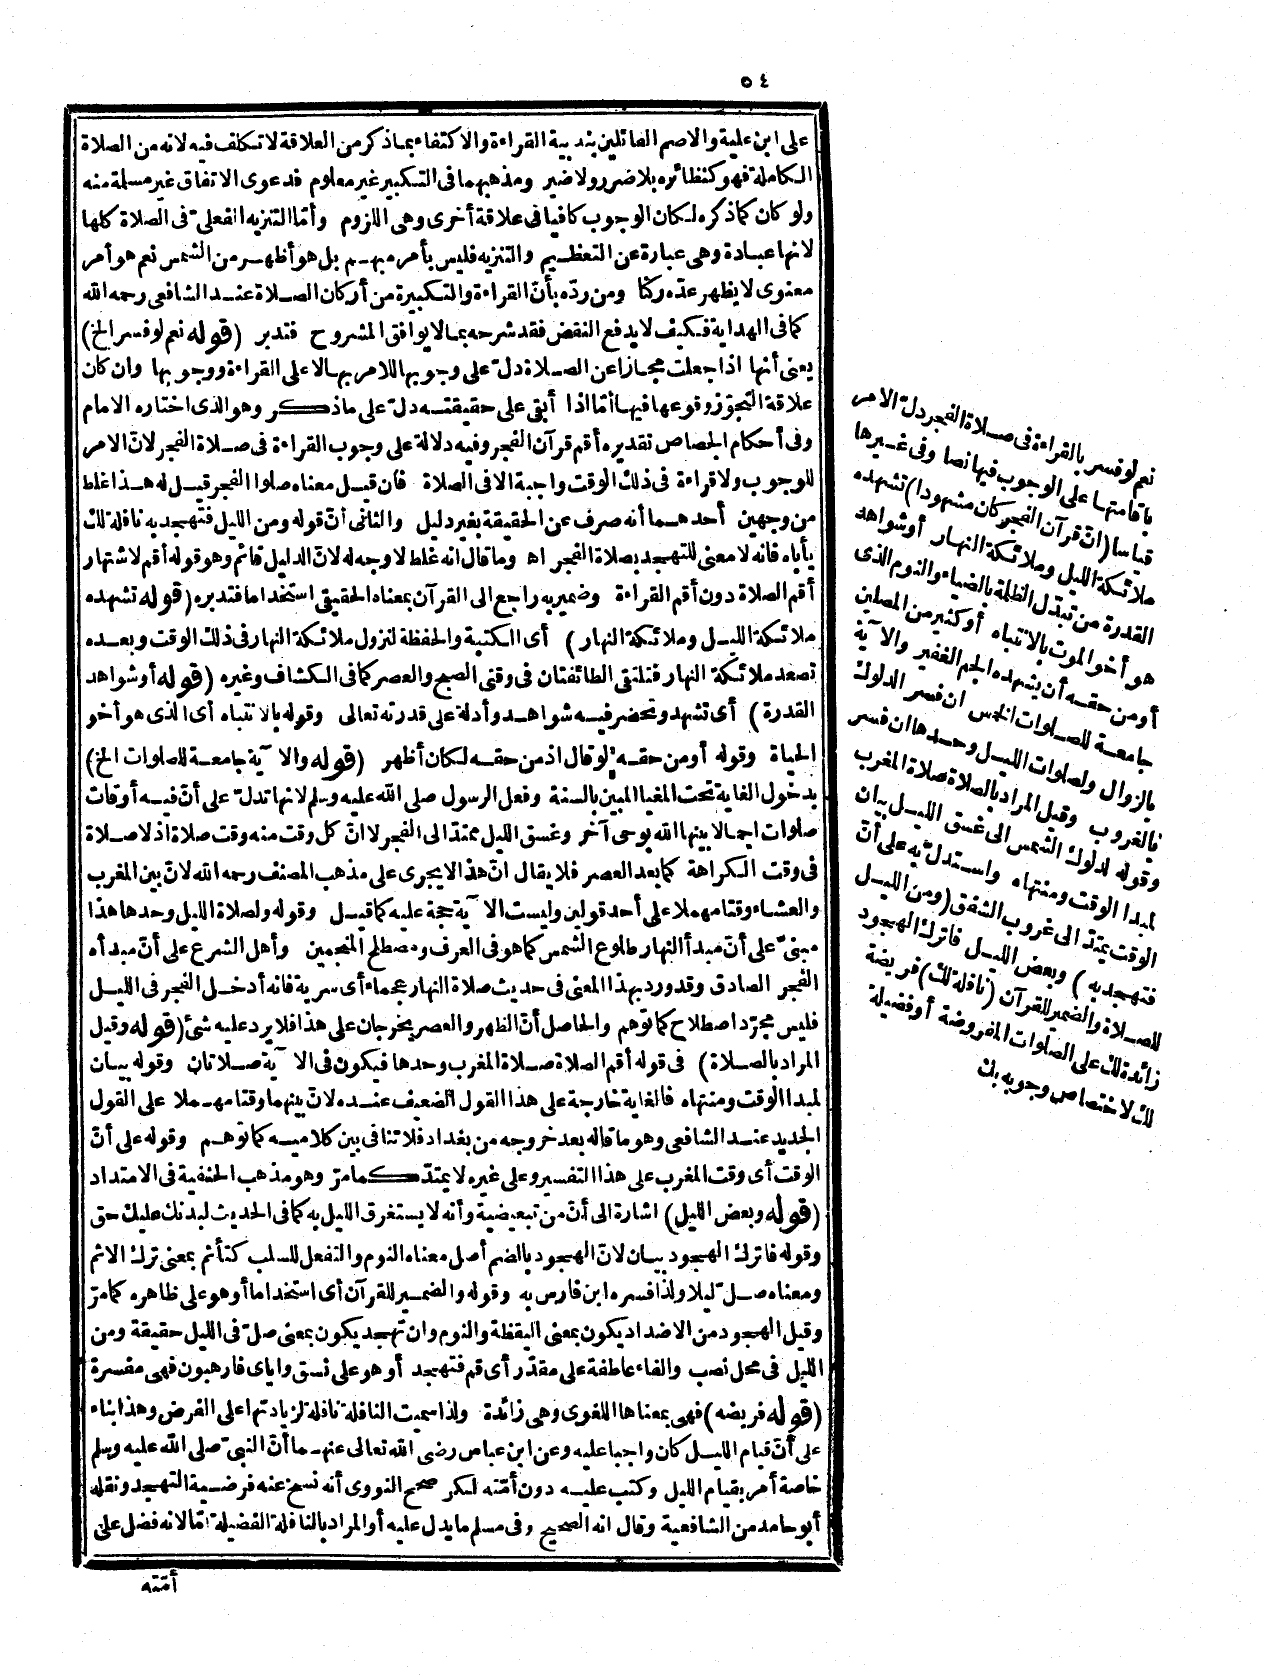 ٥٤
على ابن علية والاصم القائلين بندبية القراءة والاكتفاء بما ذكر من العلاقة لا تكلف فيه لانه من الصلاة
الكاملة فهو كنظائره بلا ضرر ولا ضير ومذهبهما في التكبير غير معلوم فدعوى الاتفاق غير مسلمة منه
ولو كان كما ذكره لكان الوجوب كافيا في علاقة أخرى وهى اللزوم وأما التنزيه الفعلىّ فى الصلاة كلها
لانها عبادة وهى عبارة عن التعظيم والتنزيه فليس بأمر مبهم بل هو أظهر من الشمس نعم هو أمر
معنوى لا يظهر عدّه ركنا ومن ردّه بأنّ القراءة والتكبيرة من أركان الصلاة عند الشافعى رحمه الله
كما فى الهداية فكيف لا يدفع النقض فقد شرحه بما لا يوافق المشروح فتدبر (قوله نعم لو فسر الخ)
يعنى أنها اذا جعلت مجازا عن الصلاة دلّ على وجوبها الامر بها لا على القراءة ووجوبها وان كان
علاقة التجوّز وقوعها فيها أمّا اذا أبقى على حقيقته دلّ على ما ذكر وهو الذى اختاره الامام
وفى أحكام الجصاص تقديره أقم قرآن الفجر وفيه دلالة على وجوب القراءة فى صلاة الفجر لانّ الامر
للوجوب ولا قراءة فى ذلك الوقت واجبة الا فى الصلاة فان قيل معناه صلوا الفجر قيل له هذا غلط
من وجهين أحدهما أنه صرف عن الحقيقة بغير دليل والثانى أنّ قوله ومن الليل فتهجد به نافلة لك
يأباه فانه لا معنى للتهجد بصلاة الفجر اه وما قال انه غلط لا وجه له لانّ الدليل قائم وهو قوله أقم لاشتهار
أقم الصلاة دون أقم القراءة وضمير به راجع الى القرآن بمعناه الحقيقى استخداما فتدبره (قوله تشهده
ملائكة الليل وملائكة النهار) أى الكتبة والحفظة لنزول ملائكة النهار فى ذلك الوقت وبعده
تصعد ملائكة النهار فتلتقى الطائفتان فى وقتى الصبح والعصر كما فى الكشاف وغيره (قوله أو شواهد
القدرة) أى تشهد وتحضر فيه شواهد وأدلة على قدرته تعالى وقوله بالانتباه أى الذى هو أخو
الحياة وقوله أو من حقه لو قال اذ من حقه لكان أظهر (قوله والآية جامعة للصلوات الخ)
بدخول الغاية تحت المغيا المبين بالسنة وفعل الرسول صلى الله عليه وسلم لانها تدلّ على أنّ فيه أوقات
صلوات اجمالا بينها الله بوحى آخر وغسق الليل ممتدّ الى الفجر لا انّ كل وقت منه وقت صلاة اذ لا صلاة
فى وقت الكراهة كما بعد العصر فلا يقال انّ هذا لا يجرى على مذهب المصنف رحمه الله لانّ بين المغرب
والعشاء وقتا مهملا على أحد قولين وليست الآية حجة عليه كما قيل وقوله ولصلاة الليل وحدها هذا
مبنىّ على أنّ مبدأ النهار طلوع الشمس كما هو فى العرف ومصطلح المنجمين وأهل الشرع على أنّ مبدأه
الفجر الصادق وقد ورد بهذا المعنى فى حديث صلاة النهار عجماء أى سرية فانه أدخل الفجر فى الليل
فليس مجرّد اصطلاح كما توهم والحاصل أنّ الظهر والعصر يخرجان على هذا فلا يرد عليه شئ (قوله وقيل
المراد بالصلاة) فى قوله أقم الصلاة صلاة المغرب وحدها فيكون فى الآية صلاتان وقوله بيان
لمبدا الوقت ومنتهاه فالغاية خارجة على هذا القول الضعيف عنده لانّ بينهما وقتا مهملا على القول
الجديد عند الشافعى وهو ما قاله بعد خروجه من بغداد فلا تنافى بين كلاميه كما توهم وقوله على أنّ
الوقت أى وقت المغرب على هذا التفسير وعلى غيره لا يمتدّ كما مرّ وهو مذهب الحنفية فى الامتداد
(قوله وبعض الليل) اشارة الى أنّ من تبعيضية وأنه لا يستغرق الليل به كما فى الحديث لبدنك عليك حق
وقوله فاترك الهجود بيان لانّ الهجود بالضم أصل معناه النوم والتفعل للسلب كتأثم بمعنى ترك الاثم
ومعناه صلّ ليلا ولذا فسره ابن فارس به وقوله والضمير للقرآن أى استخداما أو هو على ظاهره كما مرّ
وقيل الهجود من الاضداد يكون بمعنى اليقظة والنوم وان تهجد يكون بمعنى صلّ فى الليل حقيقة ومن
الليل فى محل نصب والفاء عاطفة على مقدّر أى قم فتهجد أو هو على نسق واياى فارهبون فهى مفسرة
(قوله فريضه) فهى بمعناها اللغوى وهى زائدة ولذا سميت النافلة نافلة لزيادتها على الفرض وهذا بناء
على أنّ قيام الليل كان واجبا عليه وعن ابن عباس رضى الله تعالى عنهما أنّ النبىّ صلى الله عليه وسلم
خاصة أمر بقيام الليل وكتب عليه دون أمّته لكن صحح النووى أنه نسخ عنه فرضية التهجد ونقله
أبو حامد من الشافعية وقال انه الصحيح وفى مسلم ما يدل عليه أو المراد بالنافلة الفضيلة امّا لانه فضل على
أمّته
نعم لو فسر بالقراءة فى صلاة الفجر دلّ الامر
باقامتها على الوجوب فيها نصا وفى غيرها
قياسا (انّ قرآن الفجر كان مشهودا) تشهده
ملائكة الليل وملائكة النهار أو شواهد
القدرة من تبدّل الظلمة بالضياء والنوم الذى
هو أخو الموت بالانتباه أو كثير من المصلين
أو من حقه أن يشهده الجم الغفير والآية
جامعة للصلوات الخمس ان فسر الدلوك
بالزوال ولصلوات الليل وحدها ان فسر
بالغروب وقيل المراد بالصلاة صلاة المغرب
وقوله لدلوك الشمس الى غسق الليل بيان
لمبدا الوقت ومنتهاه واستدلّ به على أنّ
الوقت يمتدّ الى غروب الشفق (ومن الليل
فتهجد به) وبعض الليل فاترك الهجود
للصلاة والضمير للقرآن (نافلة لك) فريضة
زائدة لك على الصلوات المفروضة أو فضيلة
لك لاختصاص وجوبه بك